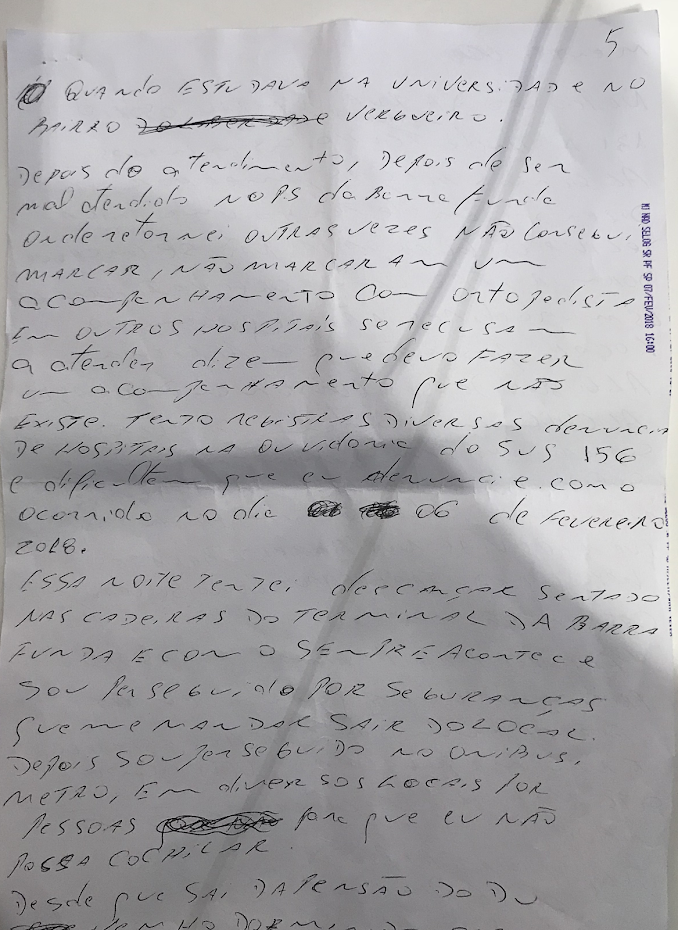 5
QUANDO ESTUDAVA NA UNIVERSIDADE NO
BAIRRO VERGUEIRO.
Depois do atendimento, Depois de ser
mal atendido NO PS da Barra funda
onde retornei OUTRAS VEZES NÃO Consegui
MARCAR, NÃO MARCARAM UM
acompanhamento com ortopedista
EM OUTROS HOSPITAIS se recusam
a atender dizem que devo FAZER
um acompanhamento que NÃO
EXISTE. TENTO REGISTRAR DIVERSAS denuncias
DE HOSPITAIS NA OUVIDORIA do SUS 156
e dificultam que eu denuncie. como
ocorrido no dia 06 de FEVEREIRO
2018.
ESSA NOITE TENTEI descançar SENTADO
NAS CADEIRAS DO TERMINAL DA BARRA
FUNDA E COMO SEMPRE Acontece
SOU PERSEGUIDO POR SEGURANÇAS
QUE ME MANDAR SAIR DO LOCAL.
Depois SOU PERSEGUIDO NO ONIBUS,
METRO, EM diversos LOCAIS POR
PESSOAS para que EU NÃO
POSSA COCHILAR.
Desde que SAI DA PENSÃO DO DU
MJ MAD SELOG SR PF SP 07/FEV/2018 16:00